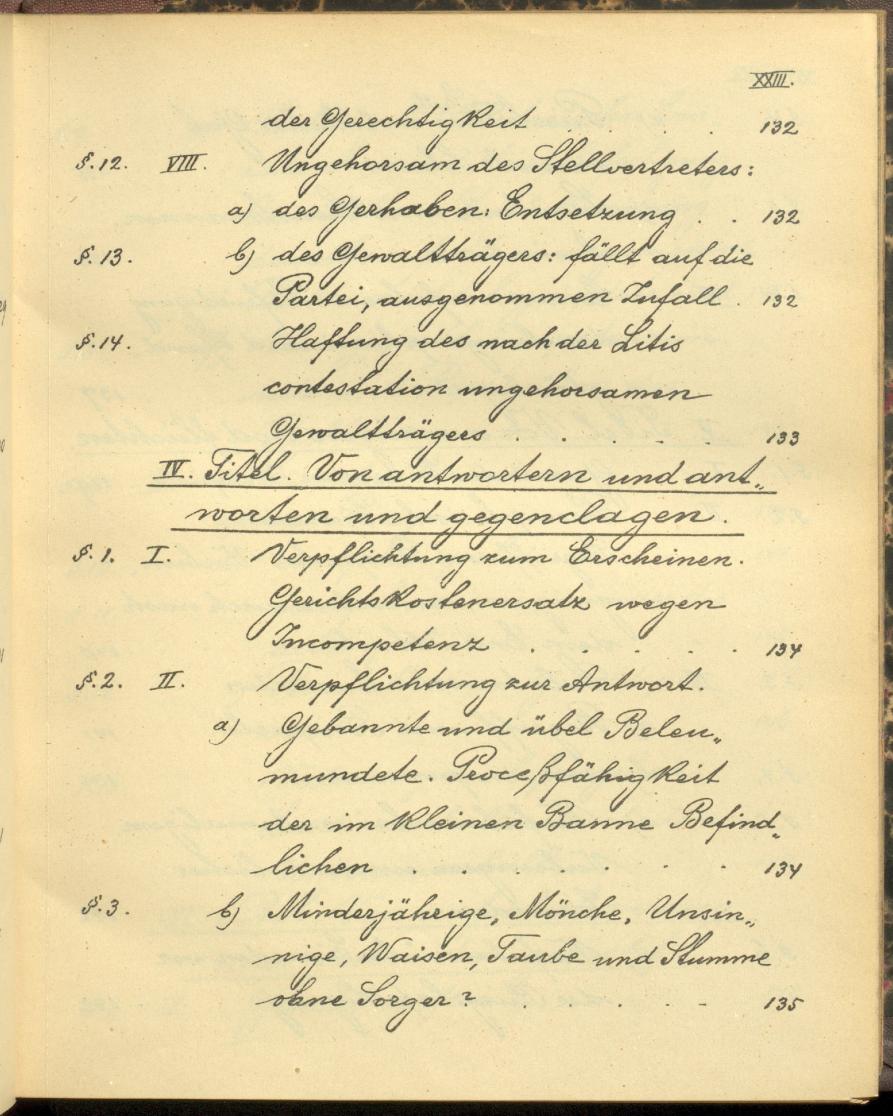 XXIII.
der Gerechtigkeit . . . . 132
§.12. VIII. Ungehorsam des Stellvertreters:
a) des Gerhaben: Entsetzung . . 132
§.13. b) des Gewaltträgers: fällt auf die
Partei, ausgenommen Zufall . 132
§.14. Haftung des nach der Litis
contestation ungehorsamen
Gewaltträgers . . . . . 133
IV. Titel. Von antwortern und ant„
worten und gegenclagen.
§.1. I. Verpflichtung zum Erscheinen.
Gerichtskostenersatz wegen
Incompetenz . . . . . 134
§.2. II. Verpflichtung zur Antwort.
a) Gebannte und übel Beleu„
mundete. Proceßfähigkeit
der im kleinen Banne Befind„
lichen . . . . . . 134
§.3. b) Minderjährige, Mönche, Unsin„
nige, Waisen, Taube und Stumme
ohne Sorger? . . . . . 135